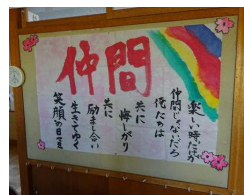 仲間
楽しい時だけが
仲間じゃないだろ
俺たちは
共に悔しがり
共に励まし合い
生きてゆく
笑顔の日々